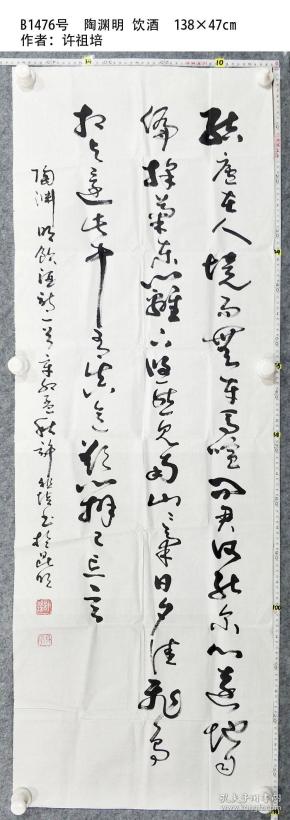 B1476号 陶渊明 饮酒 138×47cm
作者：许祖培
结庐在人境而无车马喧问君何能尔心远地自
偏采菊东篱下悠然见南山山气日夕佳飞鸟
相与还此中有真意欲辨已忘言
陶渊明饮酒诗一首辛卯孟秋许祖培书于昆明